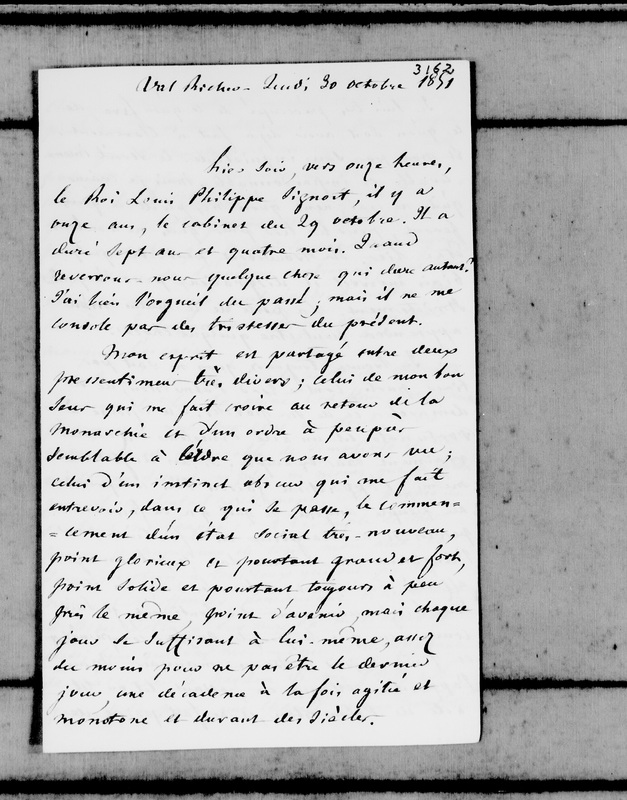 3162
Val Richer - Jeudi 30 octobre 1851
hier soir, vers onze heures,
le Roi Louis Philippe signoit, il y a
onze ans, le cabinet du 29 octobre. Il a
duré sept ans et quatre mois. Quand
reverrons nous quelque chose qui dure autant?
J'ai bien l'orgueil du passé; mais il ne me
console pas des tristesses du présent.
Mon esprit est partagé entre deux
pressentimens très divers; celui de mon bon
sens qui me fait croire au retour de la
Monarchie et d'un ordre à peu près
semblable à l'ordre que nous avons vu;
celui d'un instinct obscur qui me fait
entrevoir, dans ce qui se passe, le commen=
=cement d'un état social très-nouveau,
point glorieux et pourtant grand et fort,
point solide et pourtant toujours à peu
près le même, point d'avenir, mais chaque
jour se suffisant à lui-même, assez
du moins pour ne pas être le dernier
jour, une décadence à la fois agitée et
monotone et durant des siècles.